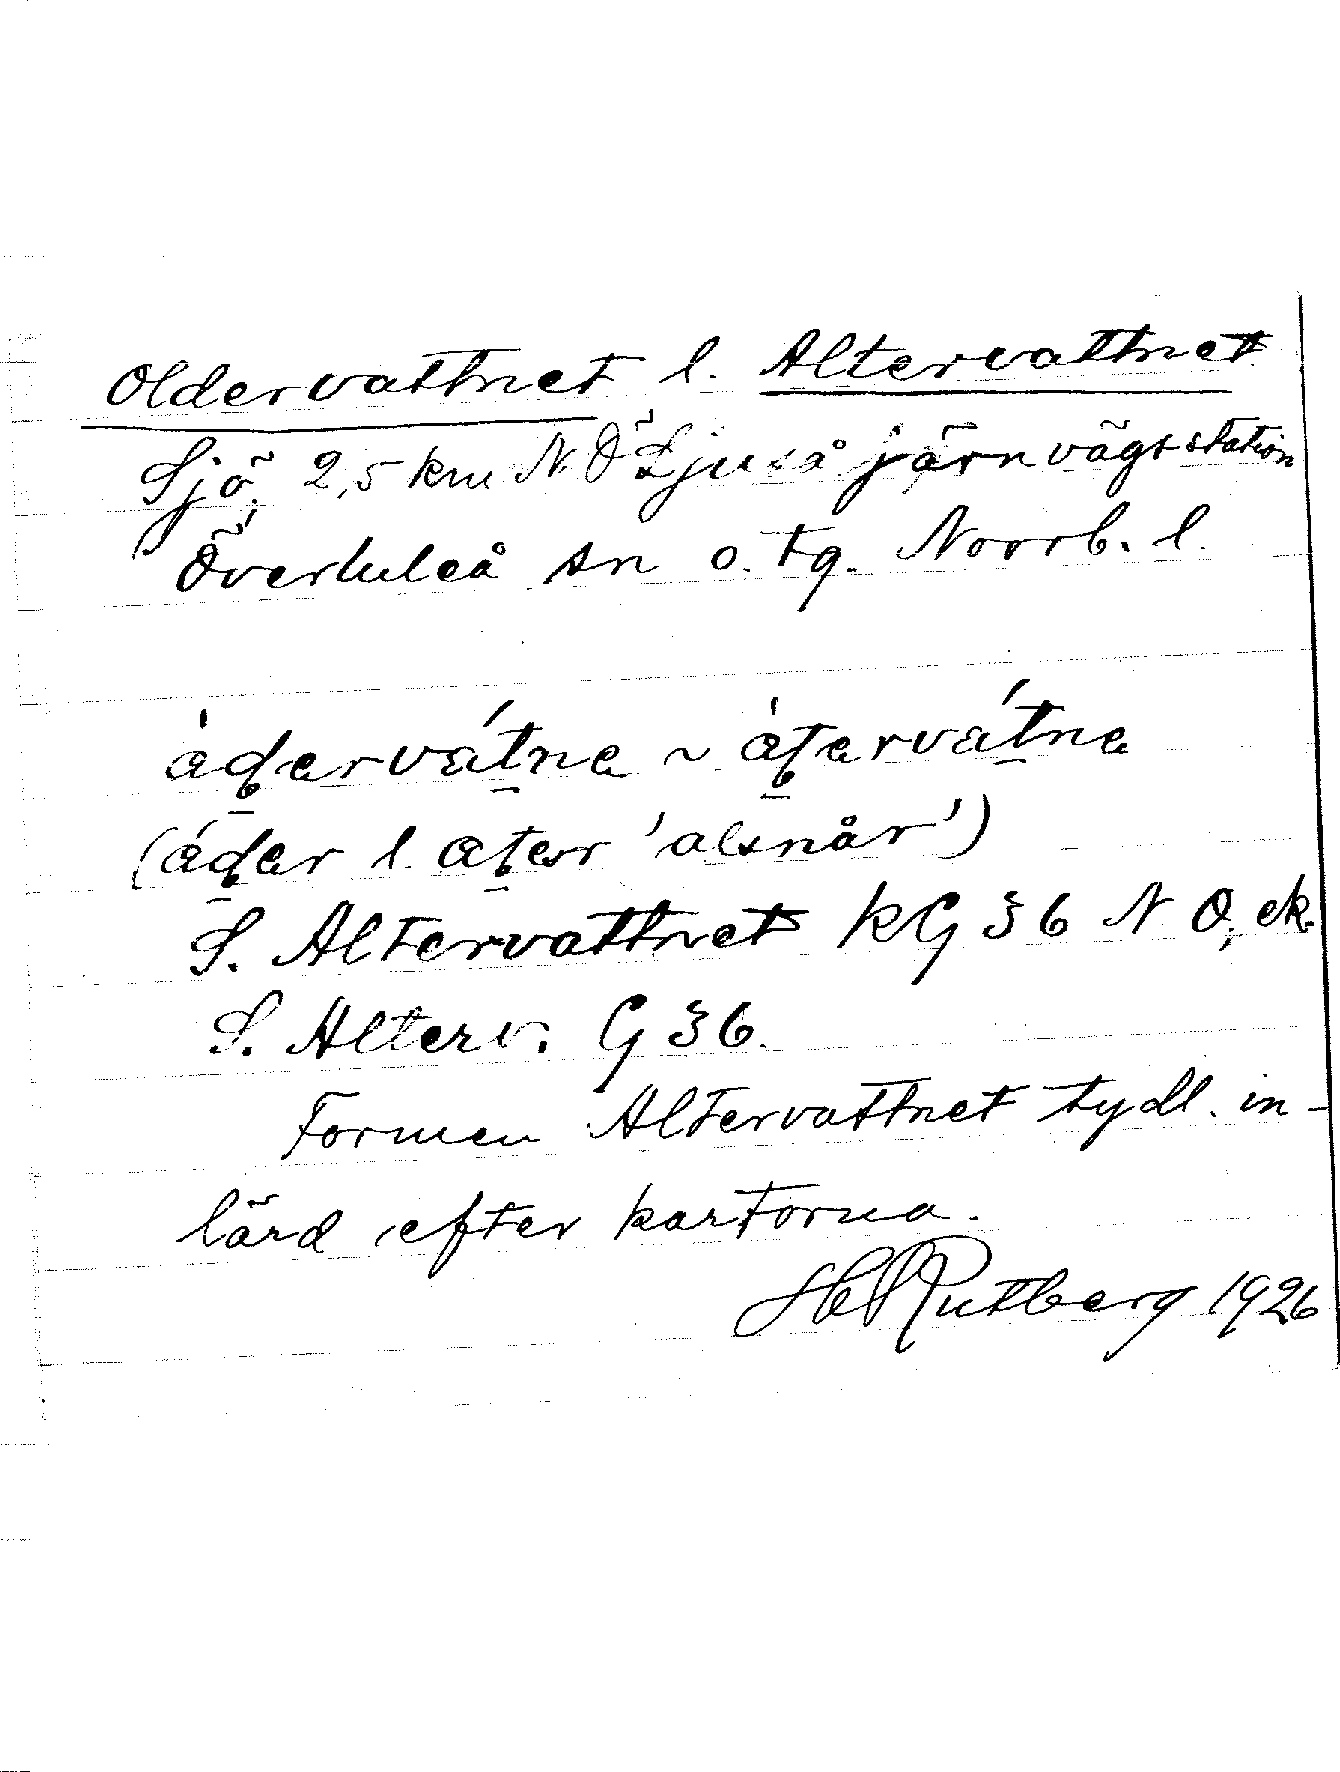 Oldervattnet l. Altervattnet
Sjö, 2,5 km N. Ö Ljuså järnvägsstation
Överluleå sn o. tg. Norrb. l.
àd̲ervátne ~ àt̲ervátne
(ád̲er l. at̲er 'alsnår')
S. Altervattnet KG 36 N O, ek.
S. Alterv. G 36.
Formen Altervattnet tydl. in-
lärd efter kartorna.
H Rutberg 1926